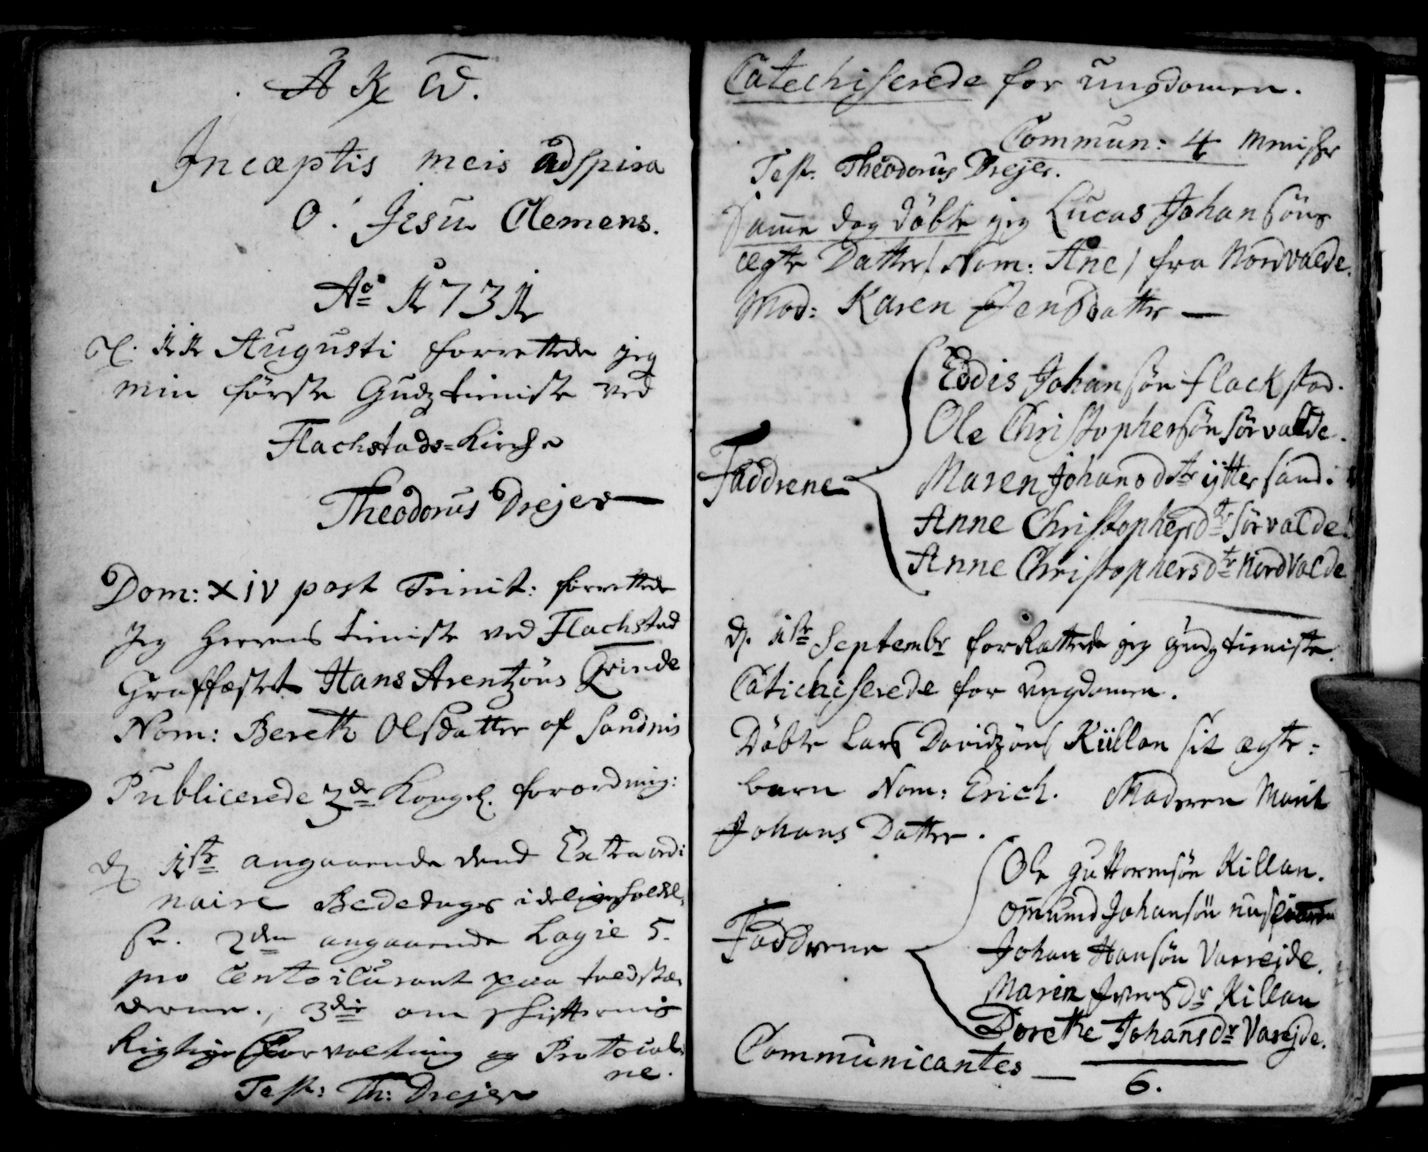 A & Ω.
Incæptis meis adspira
O! Jesu Clemens.
Aº 1731
d. 12 Augusti forrettede jeg
min første Gudztieniste ved
Flachstads-Kirche
Theodorus Drejer
Dom: XIV post Trinit: forrettede
Jeg Herrens tieniste ved Flachstad
Graffæstet Hans Arentzöns Qvinde
Nom: Bereth Olsdatter af Sandnis
Publicerede 3de Kongel. forordning:
d. 1ste angaaende dend Extraordi
naire Bededags
se. 2den angaaende Lagie 5.
pro Cento paa toldstæ
derne., 3die om skiffternis
Rigtige Forvaltning og Prottocol
ne.
Test: Th: Drejer
Catechiserede for ungdomen.
Commun: 4 Mennisker
Test. Theodorus Drejer.
Samme dag döbte jeg Lucas Johansöns
ægte Datter/ Nom: Ane/ fra Nordvalde.
Mod: Karen Jensdatter —
Eddis Johansön flackstad.
Ole Christophersön sörvalde.
Faddrene Maren Johansdtr ijttersand.
Anne Christophersdtr sörvalde.
Anne Christophersdtr Nordvalde
d. 1ste Septembr forRattede jeg gudztieniste.
Catichiserede for ungdomen.
Döbte Lars Davidzöns Küllan sit ægte=
barn Nom: Erich. Moderen Marit
Johans Datter.
Ole Guttormsön Killan.
Omund Johansön
Faddrene Johan Hansön Varrejde.
Maren Iversdr Killan
Dorethe Johansdr Varejde.
Communicantes — 6.